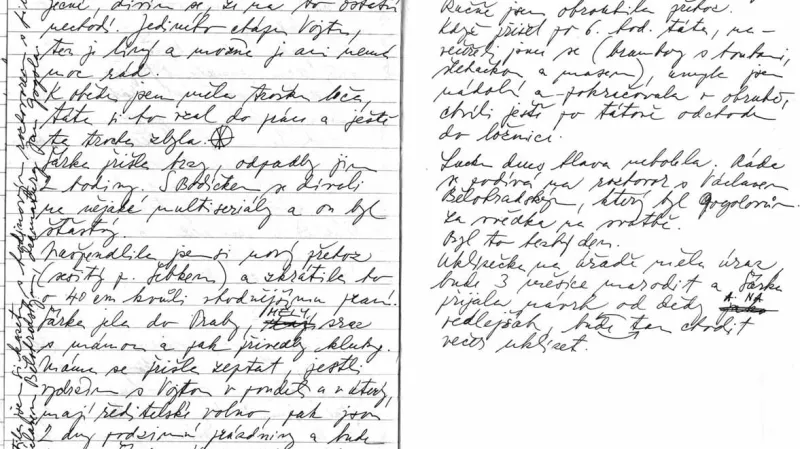 jedně, divím se, že na to ostatní
nechodí. Jediného chápu Vojtu,
ten je líný a možná je ani nemá
moc rád.
K obědu jsem měla trošku
táta si to vzal do práce a ještě
ta trocha zbyla.
Šárka přišla brzy, odpadly jim
2 hodiny. S Bládíčkem se dívali
na nějaké multiseriály a on byl
šťastný.
Našpendlila jsem si nový přehoz
(sešitý p. ) a zkrátila to
o 40 cm kvůli shodnějšímu praní.
Šárka jela do Prahy, MĚLY sraz
s mámou a pak přivedly kluky.
Máma se přišla zeptat, jestli
vydržím s Vojtou v pondělí a v úterý,
mají ředitelské volno, pak jsou
2 dny podzimní prázdniny a bude
Ručně jsem obroubila přehoz.
Když přišel po 6. hod. táta, na-
večeřeli jsme se (brambory s
a masem), umyla jsem
nádobí a pokračovala v obrubě,
chvíli ještě po tátově odchodu
do ložnice.
dnes hlava nebolela. Ráda
se podívá na rozhovor s Václavem
Bělohradským, který byl Gogolovým
za svědka na svatbě.
Byl to hezký den.
Uklízečka na úřadě měla úraz
bude 3 měsíce marodit a Šárka
přijala návrh od dědy A NA
vedlejšák, bude tam chodit
večer uklízet.